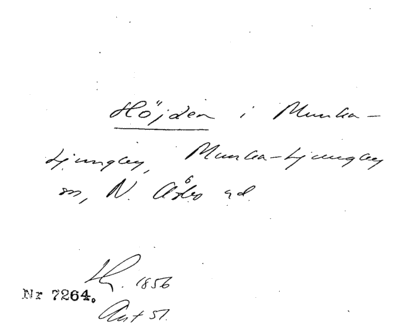 Höjden i Munka-
Ljungby, Munka-Ljungby
sn, N. Åsbo hd.
1856
Nr 7264.
Avt 51.